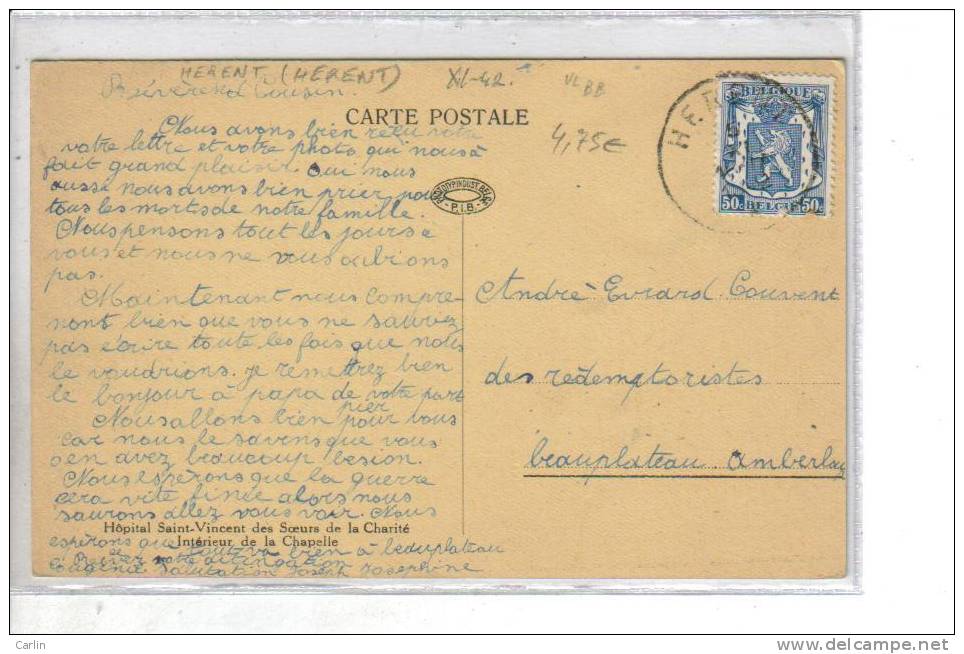 HERENT. (HERENT)
XI-42.
VL BB
Révèrend Cousin.
CARTE POSTALE
4,75€
HERENT
BELGIQUE
50c BELGIE 50c
PHOTOTYP. INDUST. BELGE
- P.I.B. -
Nous avons bien recu votre
votre lettre et votre photo qui nous à
fait grand plaisir. Oui nous
ausse nous avons bien prier pour
tous les morts de notre famille.
Nous pensons tout les jours à
vous et nous ne vous oublions
pas.
Maintenant nous compre-
nont bien que vous ne sauriez
pas écrire toute les fois que nous
le voudrions. je remettrez bien
le bonjour à papa de votre part
Nous allons bien prier pour vous
car nous le savons que vous
en avez beaucoup besion.
Nous espèrons que la guerre
cera vite finée alors nous
saurons allez vous voir. Nous
espèrons que tout va bien à beauplateau
Eugènie Salutation Joseph Josephine
Hôpital Saint-Vincent des Sœurs de la Charité
Intérieur de la Chapelle
Andrè Evrard Couvent
des redemptoristes
beauplateau Amberlay
Carlin
www.delcampe.net